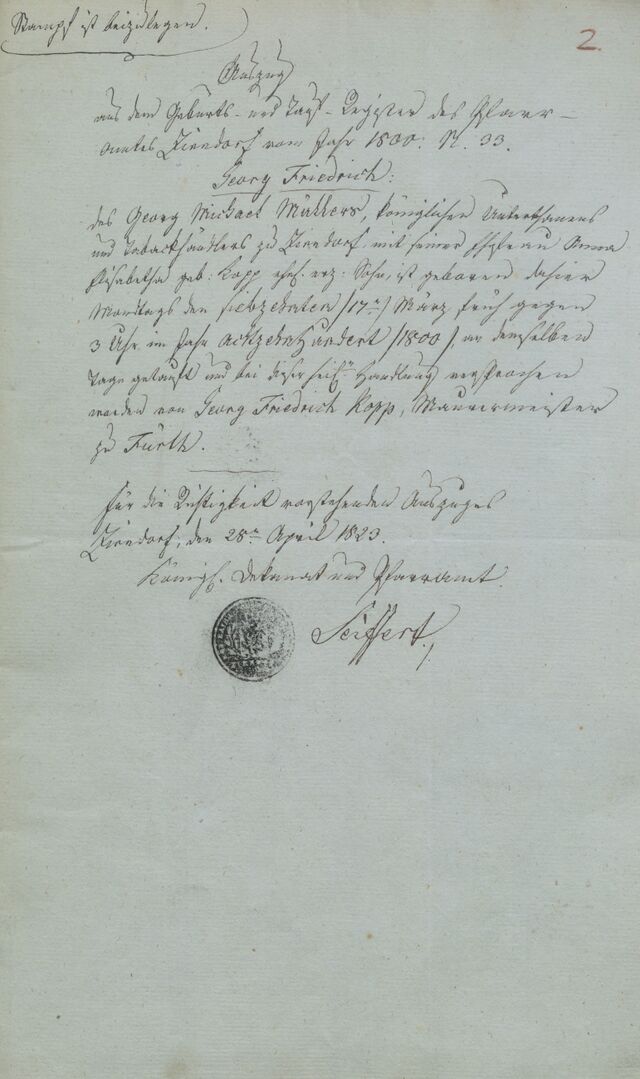 Stempel ist beizulegen.
2.
Auszug
aus dem Geburts- und Tauf-Register des Pfarr-
amtes Zirndorf vom Jahr 1800. N. 33.
Georg Friedrich:
des Georg Michael Müllers, königlichen Unterthanens
und Tabackhändlers zu Zirndorf mit seiner Ehefrau Anna
Elisabetha geb: Kopp ehel. erz: Sohn, ist geboren dahier
Mondtags den siebzehnten /17n/ März früh gegen
3 Uhr im Jahr achtzehnhundert /1800/ an demselben
Tage getauft und bei dieser heil. Handlung versprochen
worden von Georg Friedrich Kopp, Maurermeister
zu Fürth.
Für die Richtigkeit vorstehenden Auszuges
Zirndorf, den 28n April 1823.
Königl. Dekanat und Pfarramt.
Seiffert.